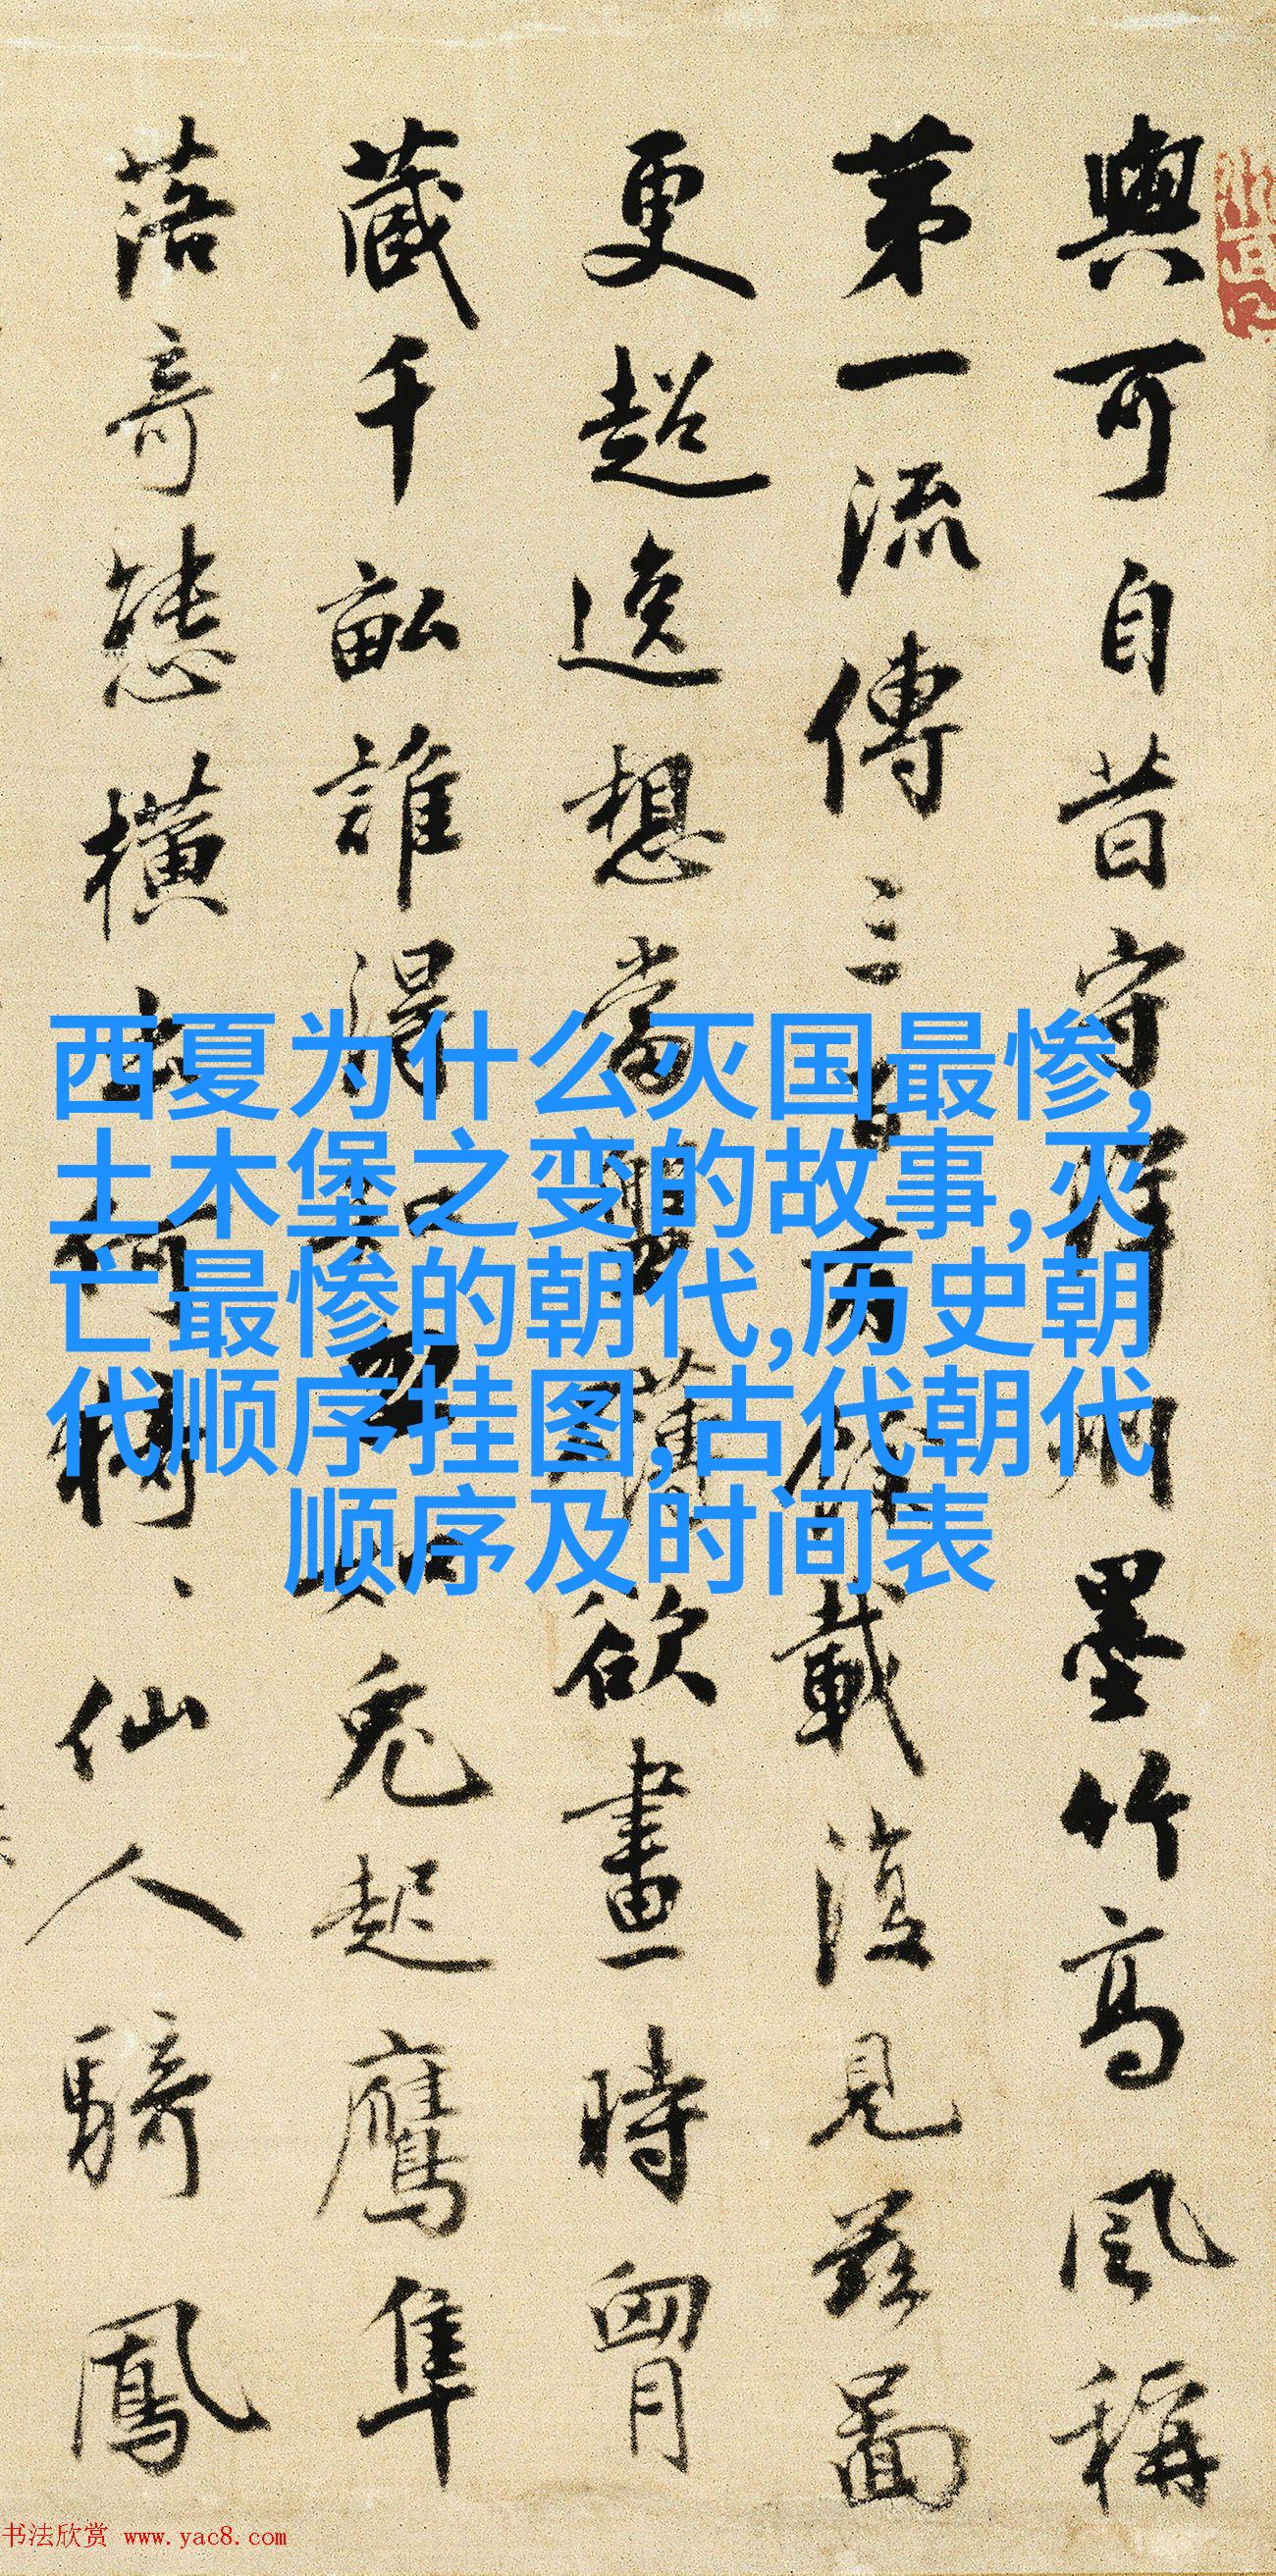 與可自昔守洋州墨竹高風稱
第一流傳三百有餘載復見茲圖
更超逸想當薄欲畫時胷
藏千畝誰得如兔起鷹隼
落奇態橫出何猗、仙人騎鳳
西夏为什么灭国最惨,
土木堡之变的故事,灭
亡最惨的朝代,历史朝
代顺序挂图,古代朝代
顺序及时间表
书法欣赏 www.yac8.com